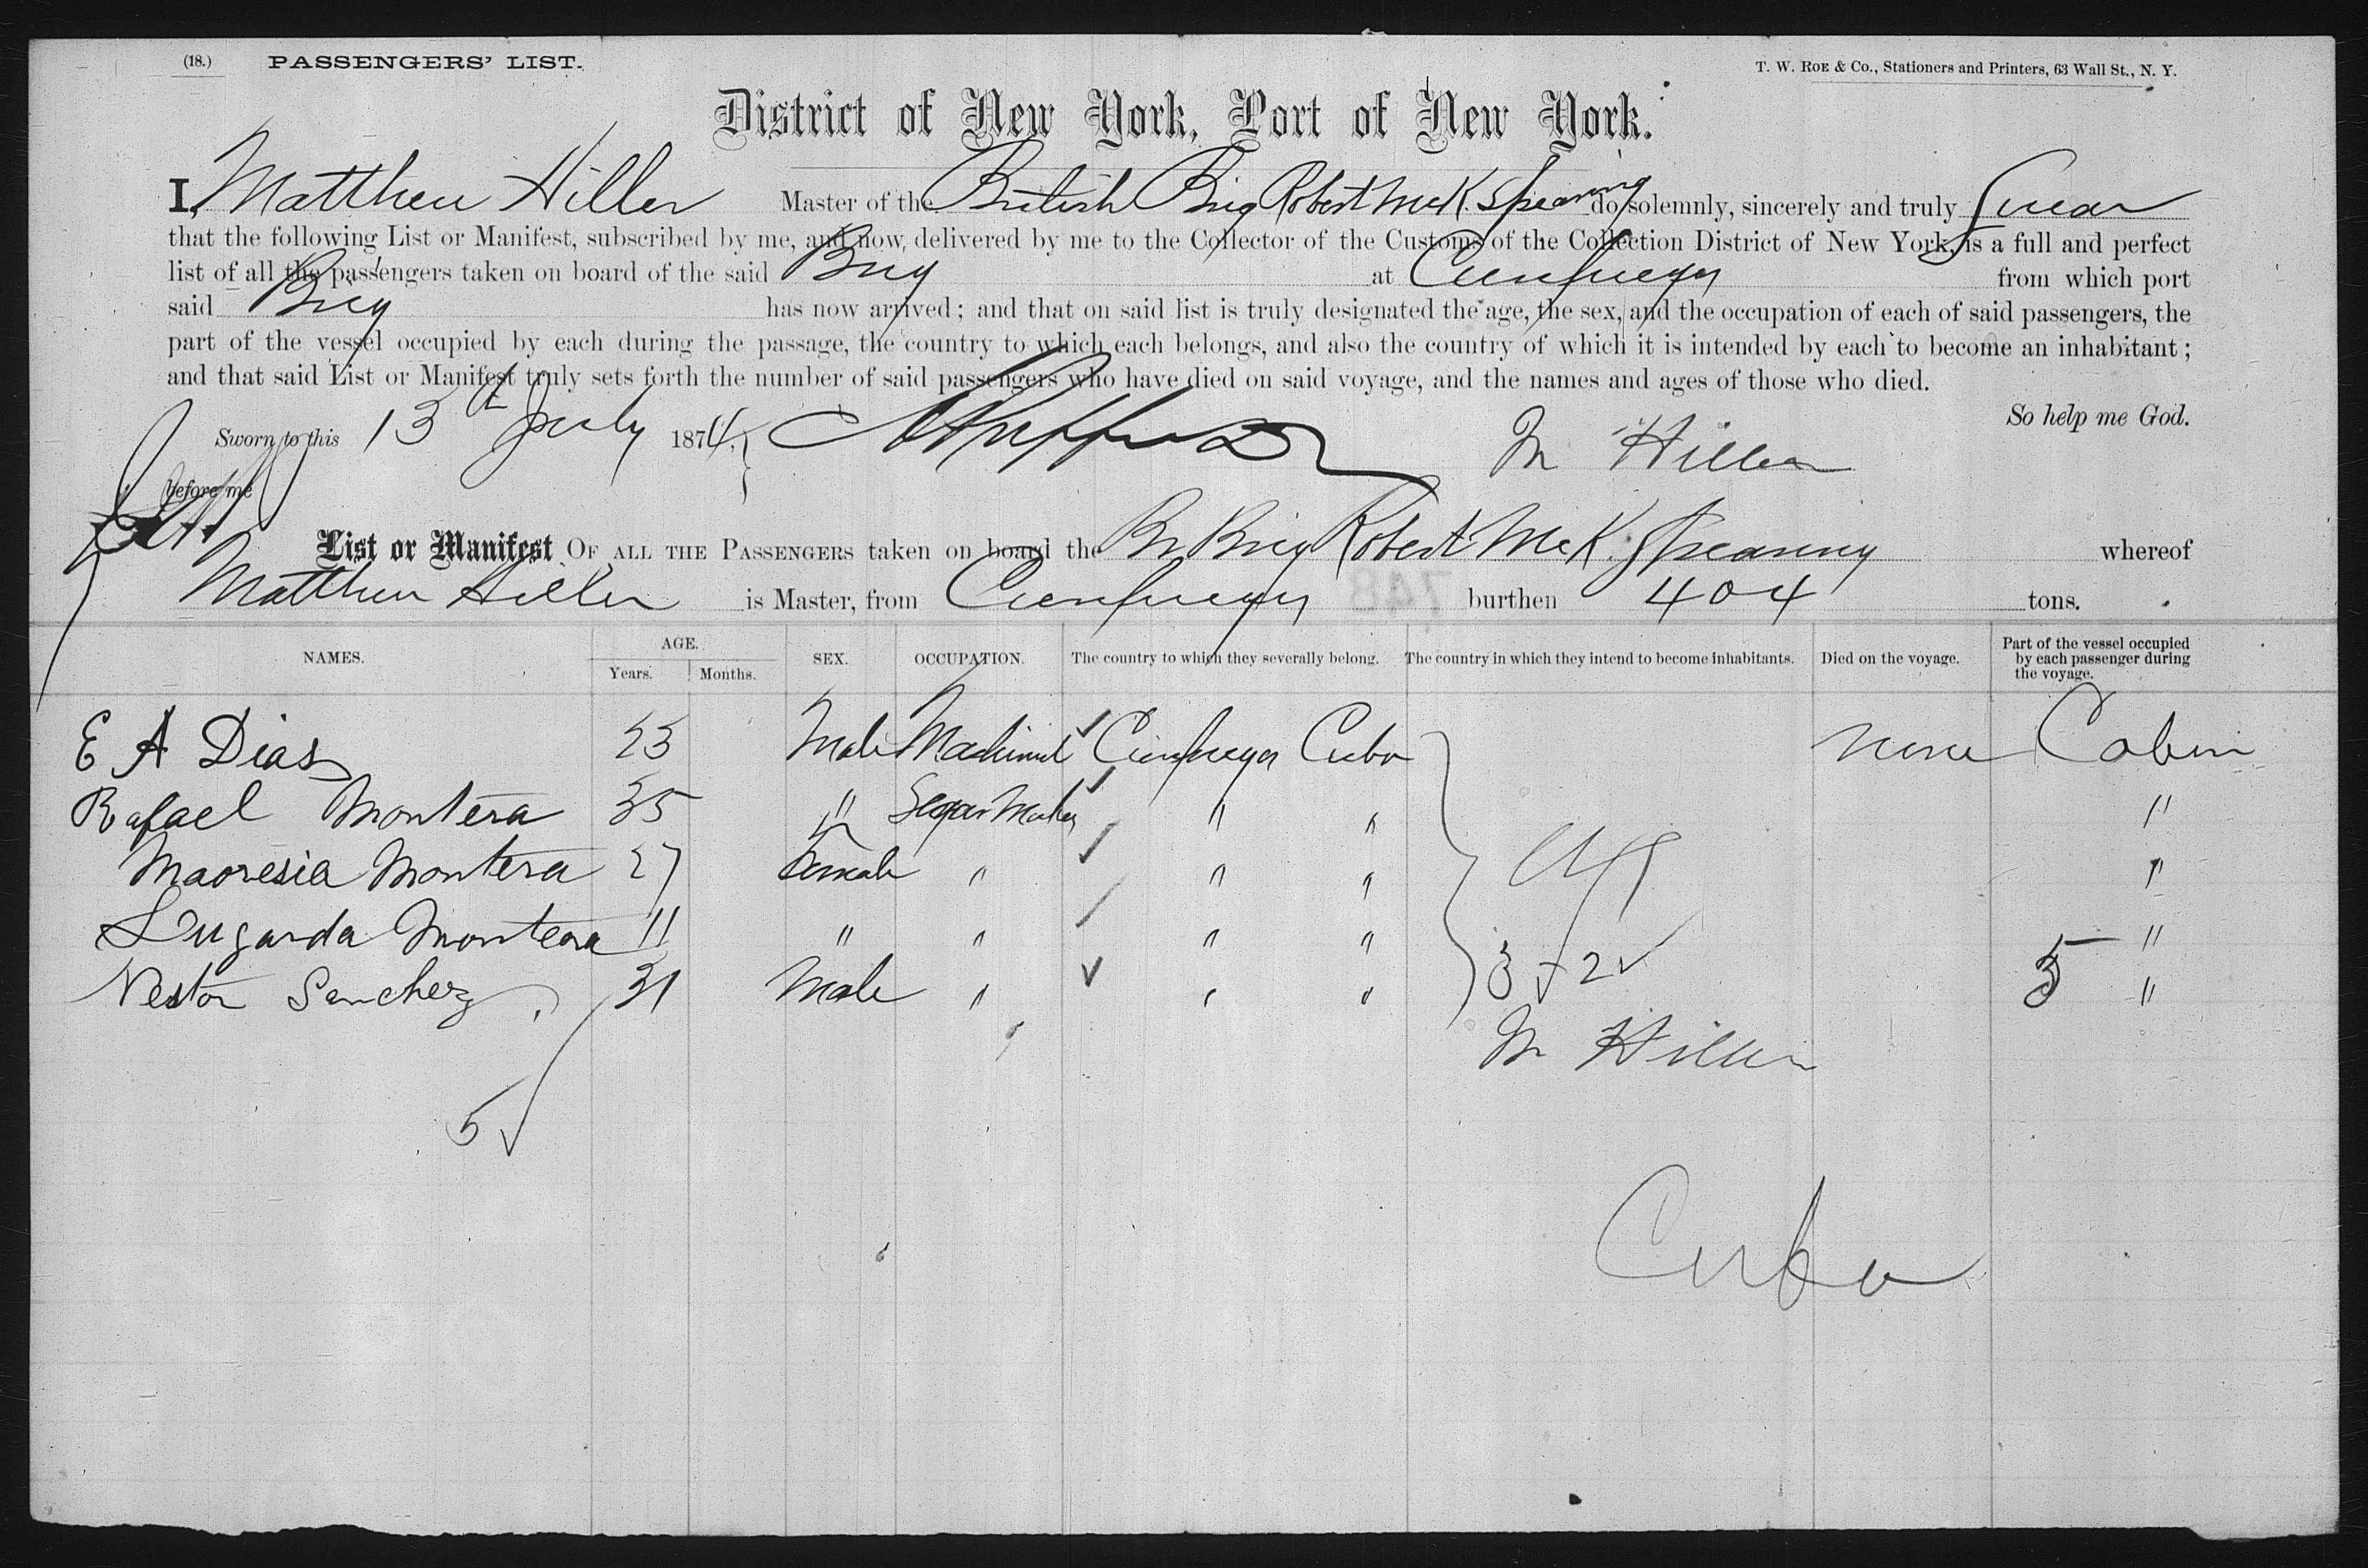 (18.) PASSENGERS' LIST.
T. W. ROE & Co., Stationers and Printers, 63 Wall St., N. Y.
District of New York, Port of New York.
I, Matthew Hiller Master of the British Brig Robert McK. Spearing do solemnly, sincerely and truly Swear
that the following List or Manifest, subscribed by me, and now, delivered by me to the Collector of the Customs of the Collection District of New York, is a full and perfect
list of all the passengers taken on board of the said Brig at Cienfuegos from which port
said Brig has now arrived; and that on said list is truly designated the age, the sex, and the occupation of each of said passengers, the
part of the vessel occupied by each during the passage, the country to which each belongs, and also the country of which it is intended by each to become an inhabitant;
and that said List or Manifest truly sets forth the number of said passengers who have died on said voyage, and the names and ages of those who died.
So help me God.
Sworn to this 13th July 1874, M Hiller
before me
List or Manifest OF ALL THE PASSENGERS taken on board the Br Brig Robert McK. Spearing whereof
Matthew Hiller is Master, from Cienfuegos burthen 404 tons.
748
NAMES. AGE. Years. Months. SEX. OCCUPATION. The country to which they severally belong. The country in which they intend to become inhabitants. Died on the voyage. Part of the vessel occupied by each passenger during the voyage.
E A Dias 23 Male Machinist Cienfuegos Cuba none Cabin
Rafael Montera 35 " Segar Maker " " "
Maoresia Montera 27 Female " " " "
Lugarda Montera 11 " " " " "
Nestor Sanchez 31 Male " " " 3 2 5 "
M Hiller
5
Cuba